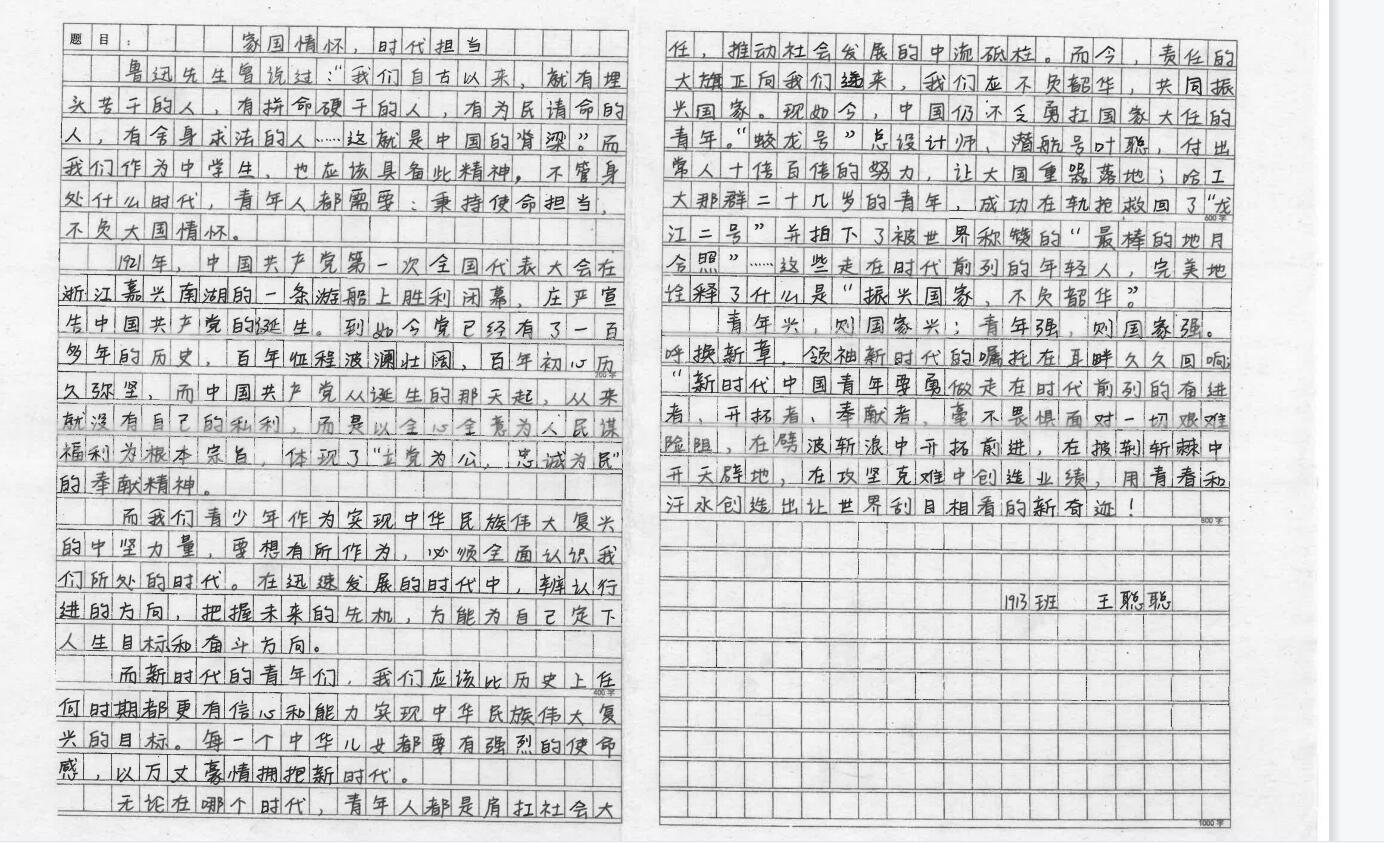 题目： 家国情怀，时代担当
鲁迅先生曾说过：“我们自古以来，就有埋
头苦干的人，有拼命硬干的人，有为民请命的
人，有舍身求法的人……这就是中国的脊梁。”而
我们作为中学生，也应该具备此精神。不管身
处什么时代，青年人都需要：秉持使命担当，
不负大国情怀。
1921年，中国共产党第一次全国代表大会在
浙江嘉兴南湖的一条游船上胜利闭幕，庄严宣
告中国共产党的诞生。到如今党已经有了一百
多年的历史，百年征程波澜壮阔，百年初心历
200字
久弥坚，而中国共产党从诞生的那天起，从来
就没有自己的私利，而是以全心全意为人民谋
福利为根本宗旨，体现了“立党为公，忠诚为民”
的奉献精神。
而我们青少年作为实现中华民族伟大复兴
的中坚力量，要想有所作为，必须全面认识我
们所处的时代。在迅速发展的时代中，辨认行
进的方向，把握未来的先机，方能为自己定下
人生目标和奋斗方向。
而新时代的青年们，我们应该比历史上任
400字
何时期都更有信心和能力实现中华民族伟大复
兴的目标。每一个中华儿女都要有强烈的使命
感，以万丈豪情拥抱新时代。
无论在哪个时代，青年人都是肩扛社会大
任，推动社会发展的中流砥柱。而今，责任的
大旗正向我们递来，我们应不负韶华，共同振
兴国家。现如今，中国仍不乏勇扛国家大任的
青年。“蛟龙号”总设计师、潜航号叶聪，付出
常人十倍百倍的努力，让大国重器落地；哈工
大那群二十几岁的青年，成功在轨抢救回了“龙
600字
江二号”并拍下了被世界称赞的“最棒的地月
合照”……这些走在时代前列的年轻人，完美地
诠释了什么是“振兴国家，不负韶华”。
青年兴，则国家兴；青年强，则国家强。
呼换新章，领袖新时代的嘱托在耳畔久久回响：
“新时代中国青年要勇做走在时代前列的奋进
者、开拓者、奉献者，毫不畏惧面对一切艰难
险阻，在劈波斩浪中开拓前进，在披荆斩棘中
开天辟地，在攻坚克难中创造业绩，用青春和
汗水创造出让世界刮目相看的新奇迹！
800字
1913班 王聪聪
1000字